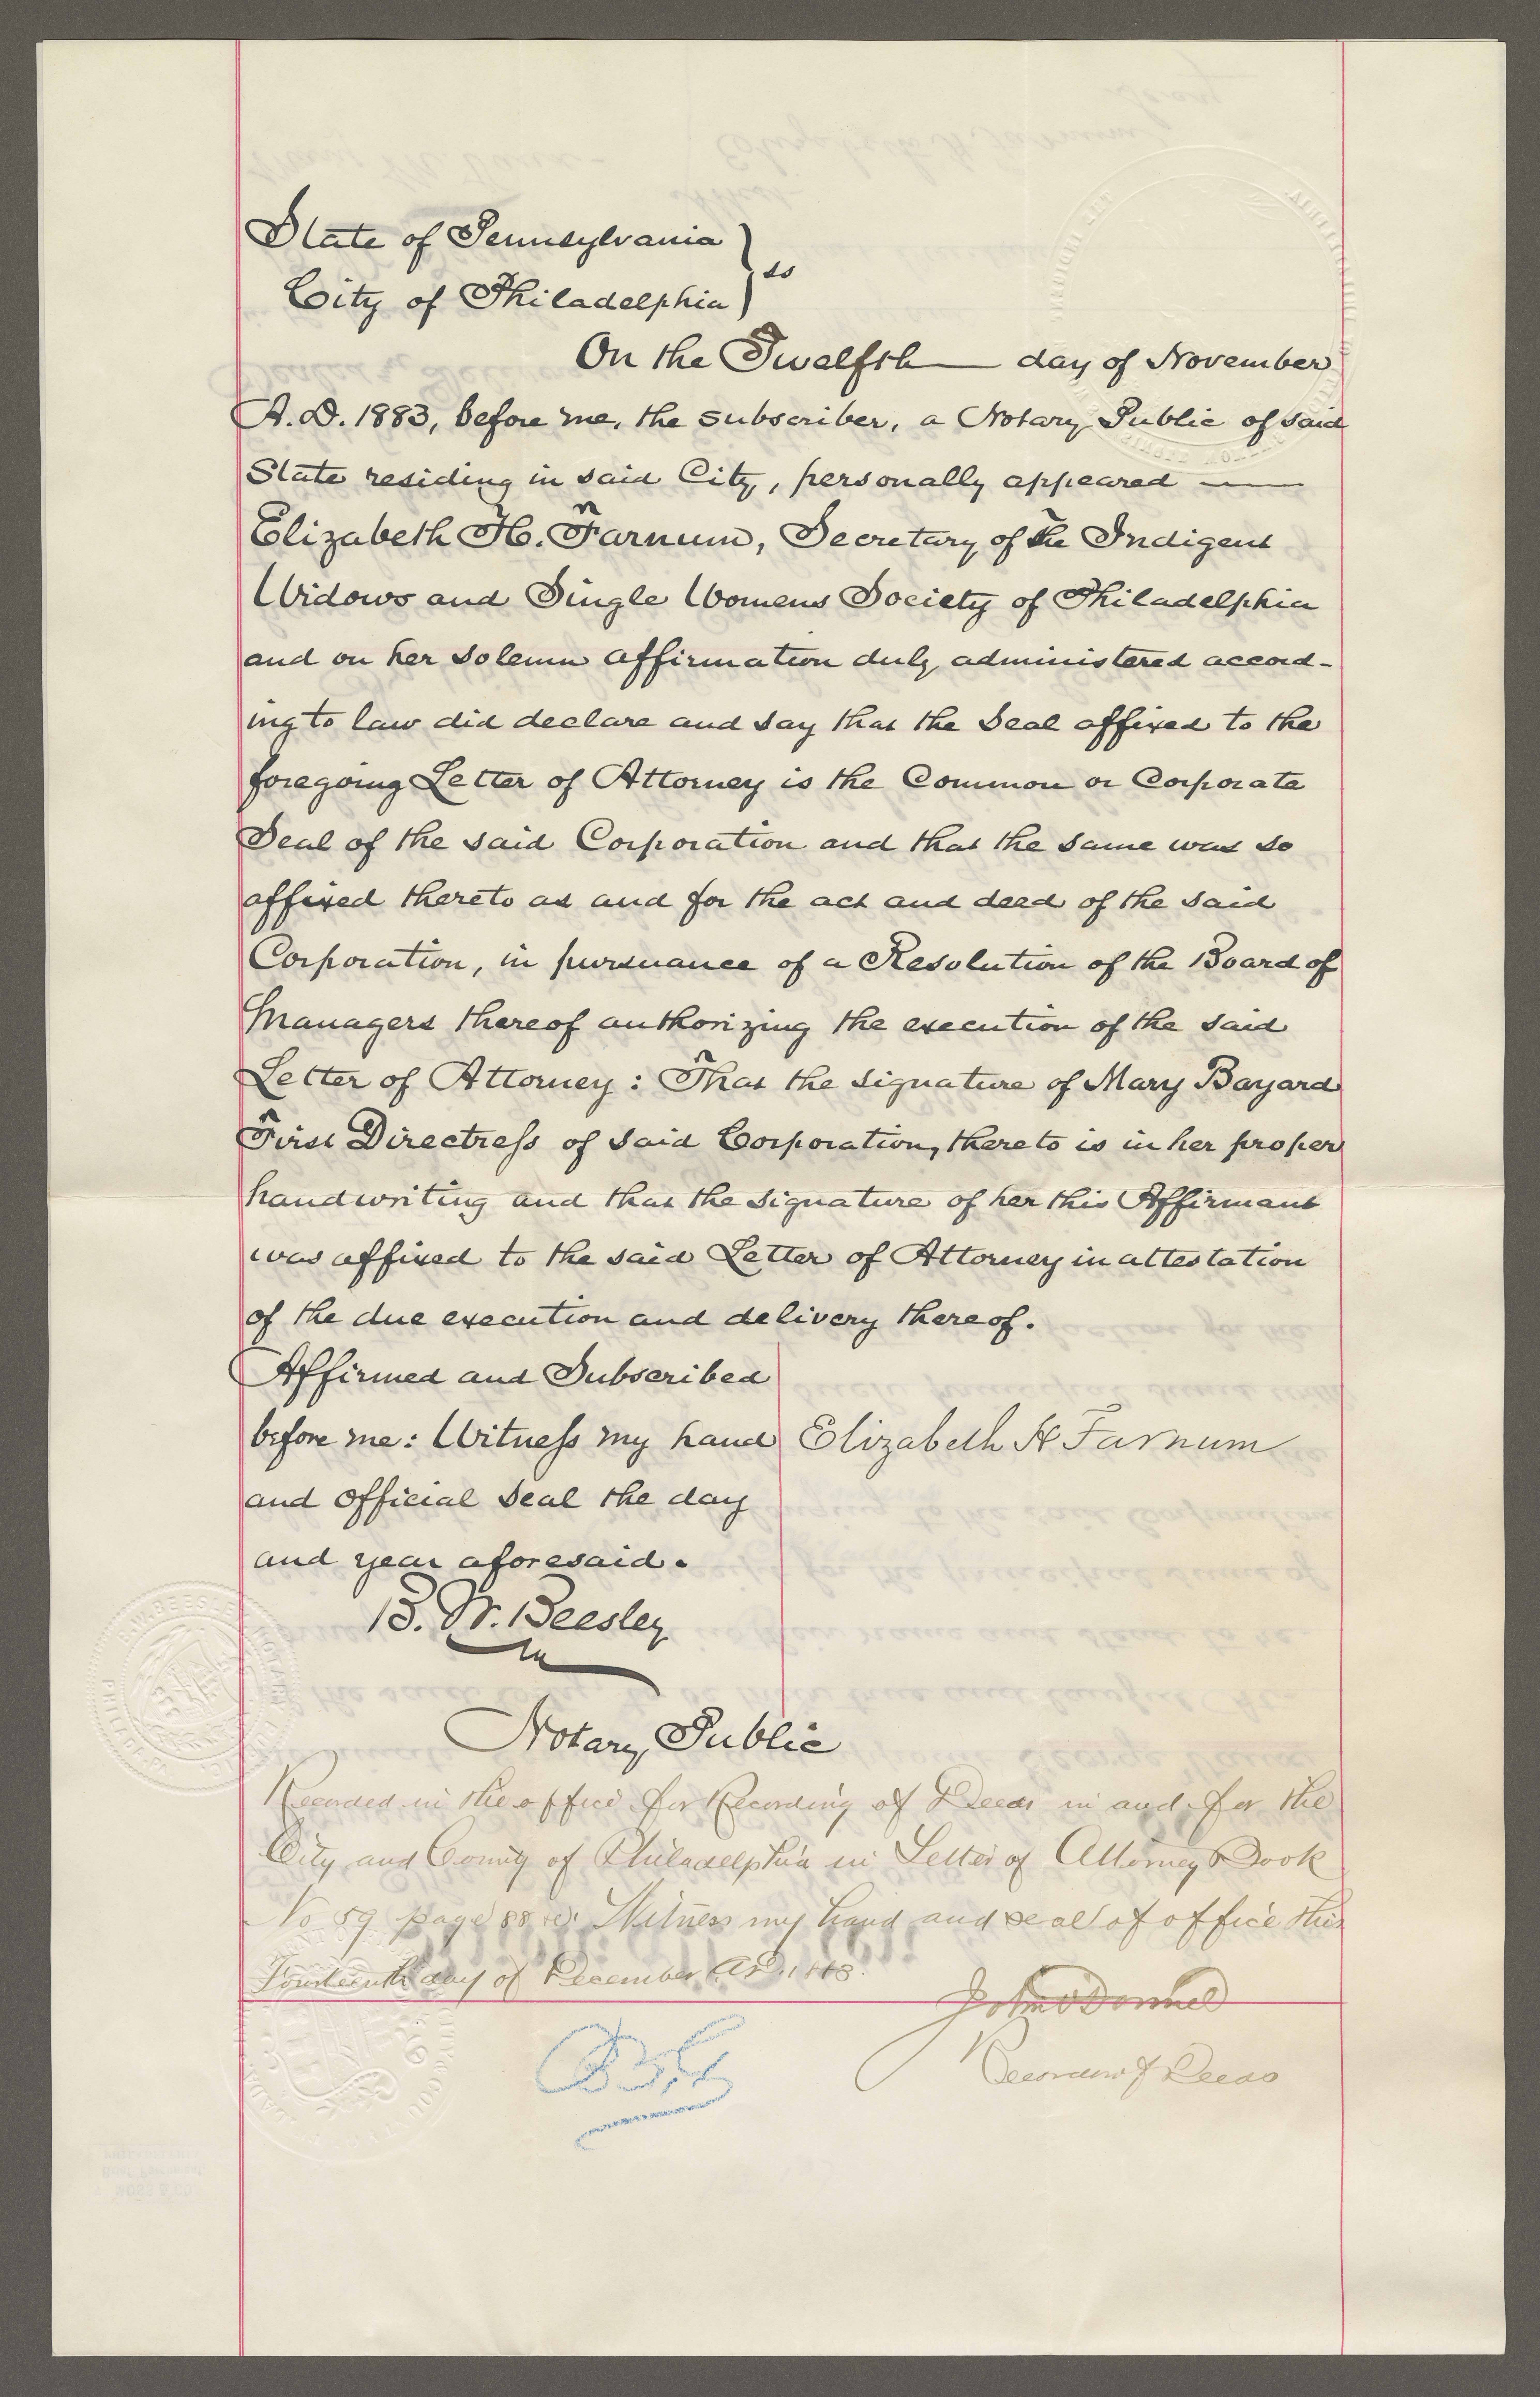 State of Pennsylvania
City of Philadelphia } ss
On the Twelfth day of November
A.D. 1883, before me, the subscriber, a Notary Public of said
State residing in said City, personally appeared
Elizabeth H. Farnum, Secretary of the Indigent
Widows and Single Womens Society of Philadelphia
and on her solemn affirmation duly administered accord-
ing to law did declare and say that the Seal affixed to the
foregoing Letter of Attorney is the Common or Corporate
Seal of the said Corporation and that the same was so
affixed thereto as and for the act and deed of the said
Corporation, in pursuance of a Resolution of the Board of
Managers thereof authorizing the execution of the said
Letter of Attorney : That the signature of Mary Bayard
First Directress of said Corporation, thereto is in her proper
handwriting and that the signature of her this Affirmant
was affixed to the said Letter of Attorney in attestation
of the due execution and delivery thereof.
Affirmed and Subscribed
before me: Witness my hand
and official Seal the day
and year aforesaid.
Elizabeth H Farnum
B. W. Beesley
Notary Public
Recorded in the office for Recording of Deeds in and for the
City and County of Philadelphia in Letter of Attorney Book
No 89 page 88 &c. Witness my hand and seal of office this
Fourteenth day of December A.D. 1883.
John O'Donnel
Recorder of Deeds